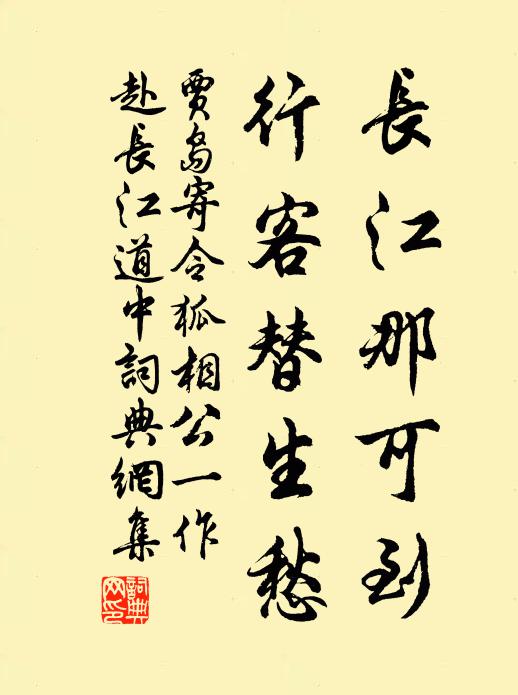 長江那可到
行客替生愁
賈島寄令狐相公一作
赴長江道中詞典網集
詞典
网印